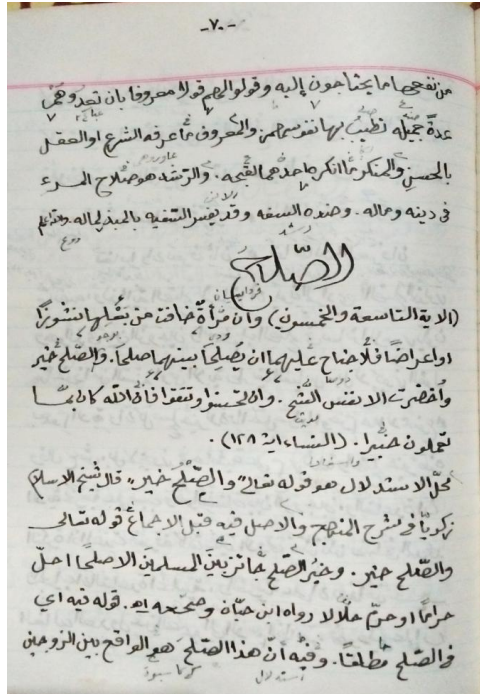 -٧٠-
من نفعها ما يحتاجون إليه وقولوا لهم قولا معروفا بان تعدوهم
عدة جميلة تطيب بها نفوسهم والمعروف ما عرفه الشرع او العقل
بالحسن والمنكر ما انكره احدهما لقبحه. والرشد هو صلاح المرء
فى دينه وماله. وضده السفه وقد يفسر السفيه بالمبذر لماله. والله اعلم
الصلح
(الاية التاسعة والخمسون) وان مرأة خافت من بعلها نشوزا
او اعراضا فلا جناح عليهما ان يصلحا بينهما صلحا. والصلح خير
وأحضرت الانفس الشح. وان تحسنوا وتتقوا فان الله كان بما
تعملون خبيرا. (النساء اية ١٢٨).
محل الاستدلال هو قوله تعالى "والصلح خير" قال شيخ الاسلام
زكريا فى شرح المنهج والاصل فيه قبل الاجماع قوله تعالى
والصلح خير. وخبر الصلح جائز بين المسلمين الا صلحا احل
حراما او حرم حلالا رواه ابن حبان وصححه اه. قوله فيه اي
فى الصلح مطلقا. وفيه أن هذا الصلح هو الواقع بين الزوجين